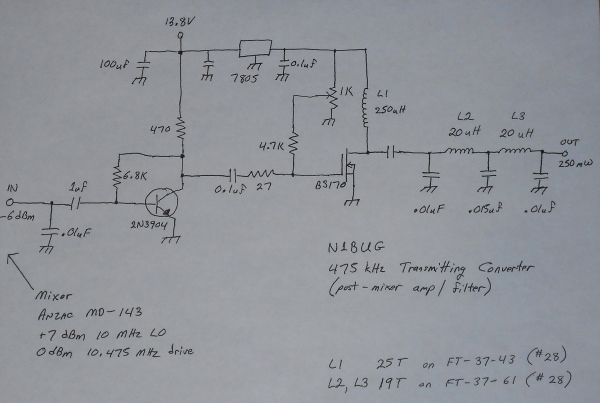 13.8V
100uF
7805
0.1uF
1K
L1
250uH
470
4.7K
L2
20uH
L3
20uH
OUT
250mW
6.8K
IN
-6dBm
1uF
.01uF
2N3904
0.1uF
27
BS170
.01uF
.015uF
.01uF
N1BUG
475 kHz Transmitting Converter
(post-mixer amp/filter)
Mixer
Anzac MD-143
+7 dBm 10 MHz LO
0 dBm 10.475 MHz drive
L1 25T on FT-37-43 (#28)
L2, L3 19T on FT-37-61 (#28)